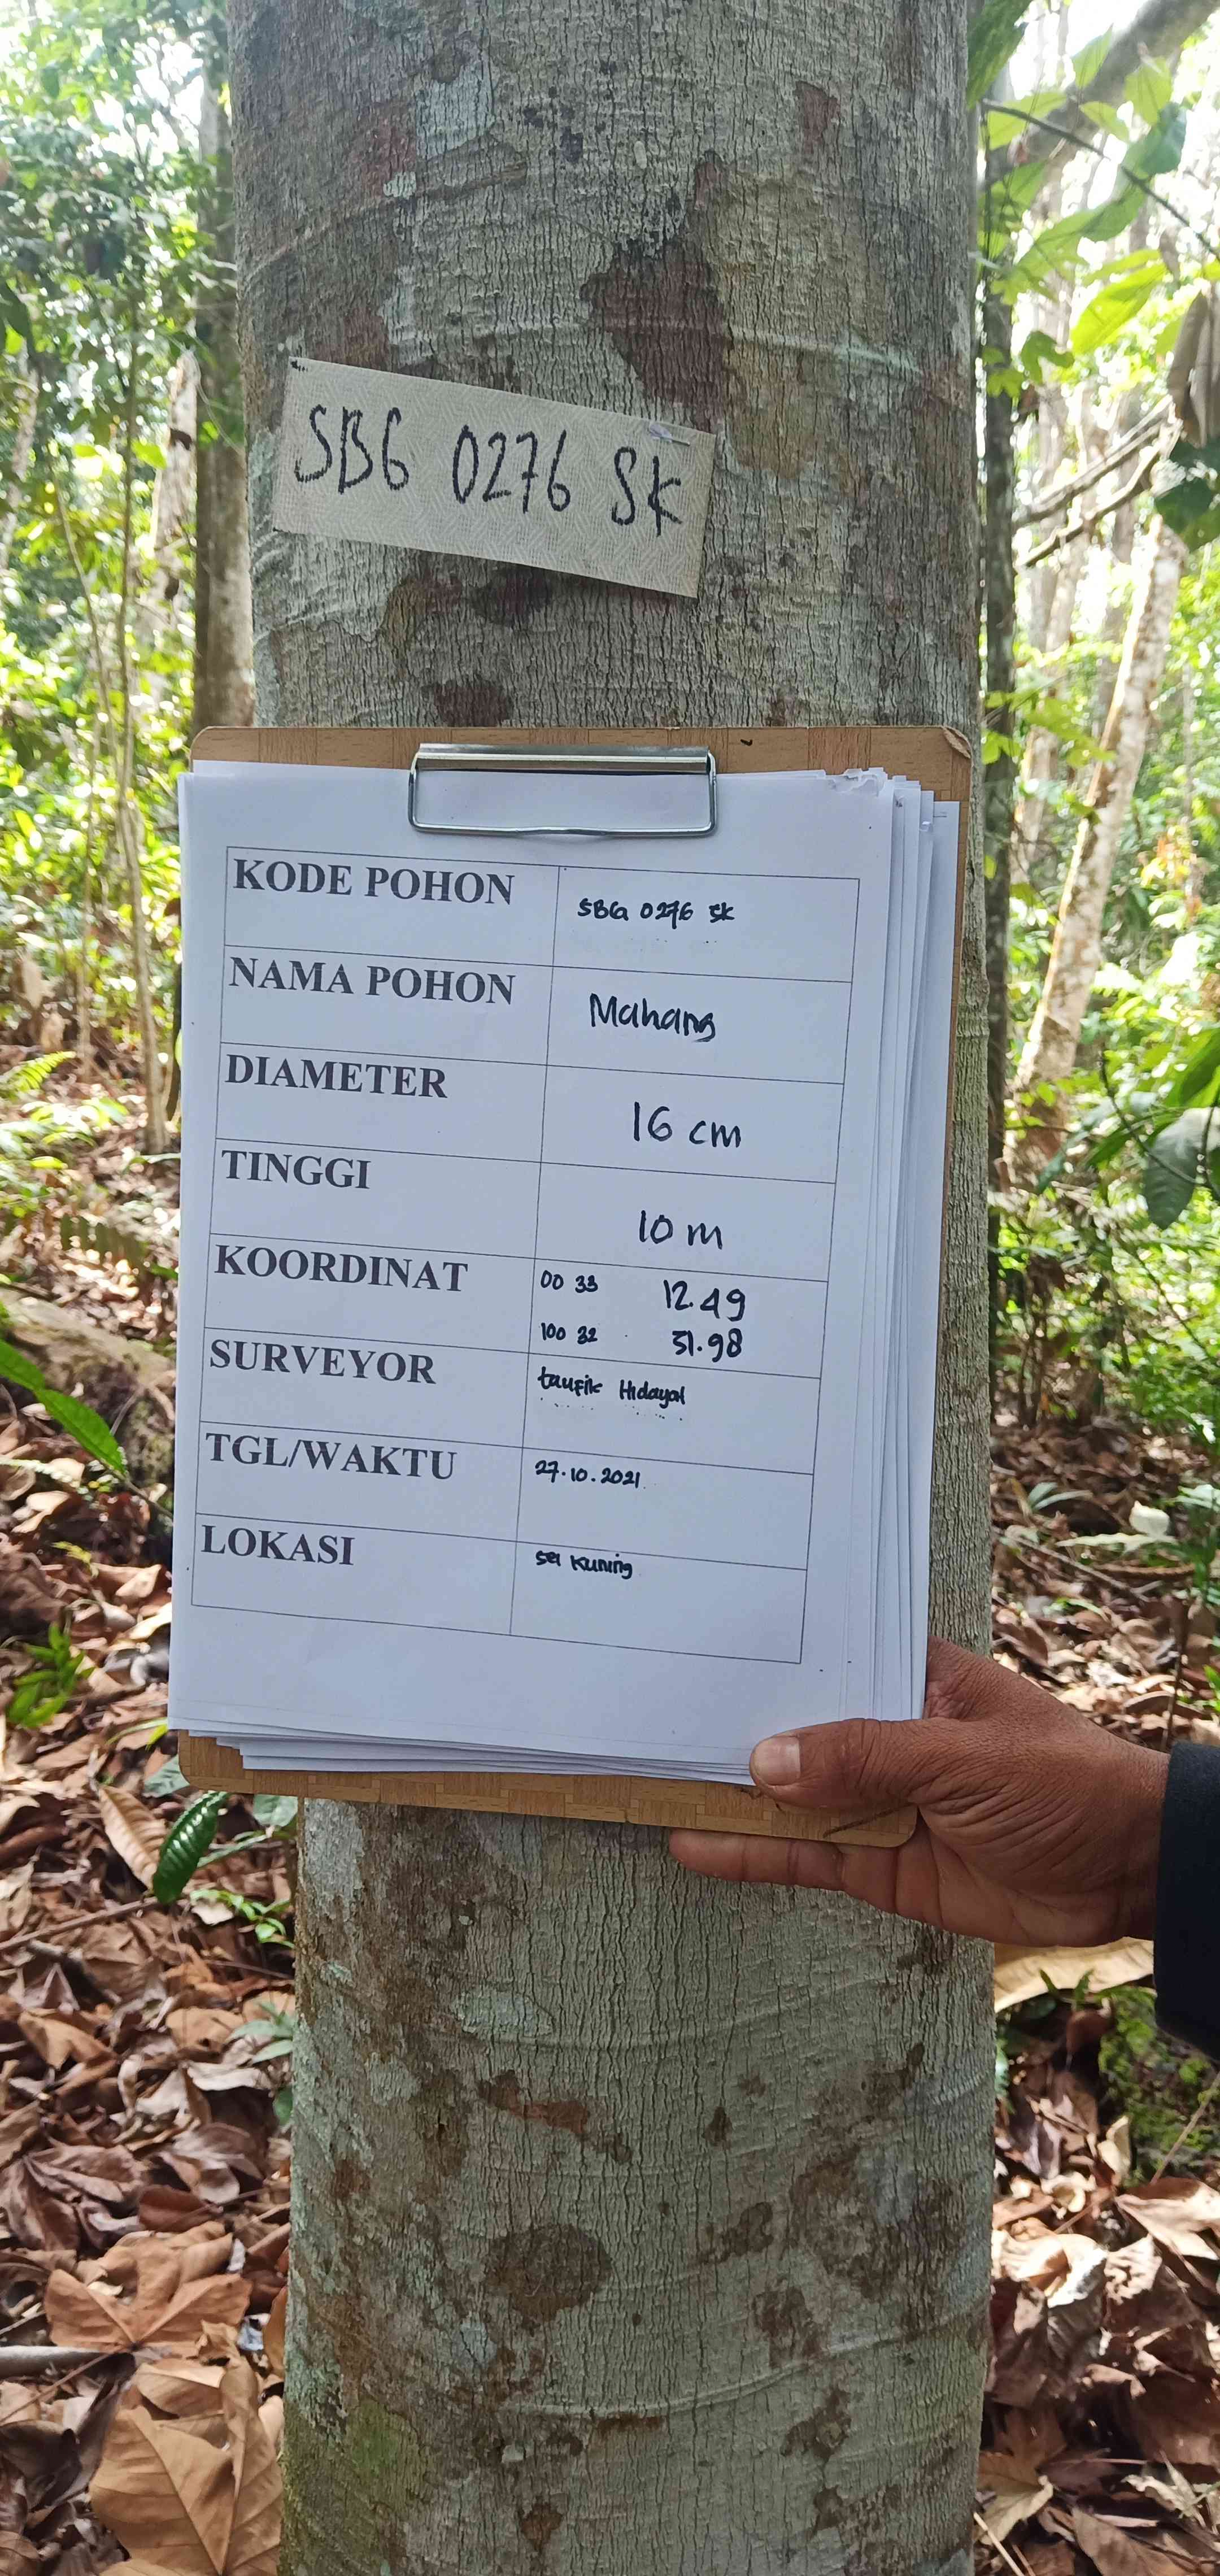 SBG 0276 SK
KODE POHON SBG 0276 SK
NAMA POHON Mahang
DIAMETER 16 cm
TINGGI 10 m
KOORDINAT 00 33 12.49
100 32 51.98
SURVEYOR taufik Hidayat
TGL/WAKTU 27.10.2021
LOKASI sei kuning